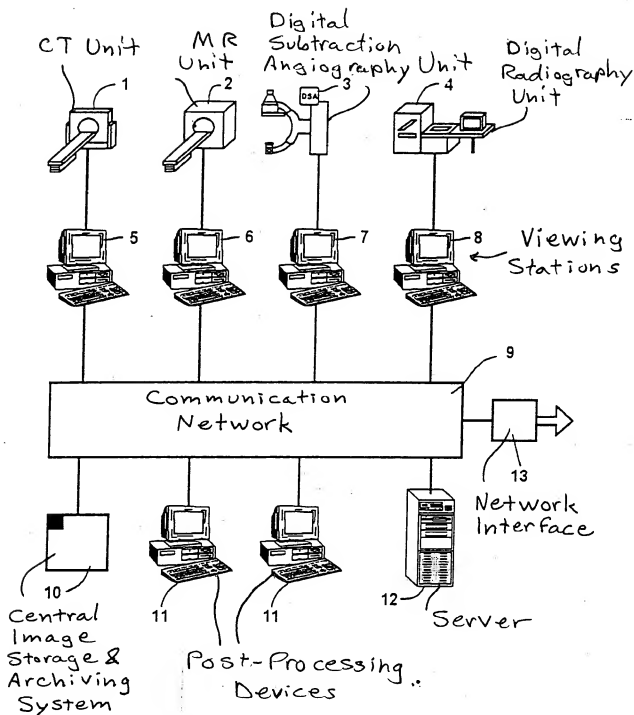 CT Unit
MR
Unit
Digital
Subtraction
Angiography Unit
Digital
Radiography
Unit
1
2
3
DSA
4
5
6
7
8
Viewing
Stations
9
Communication
Network
13
Network
Interface
10
11
11
12
Server
Central
Image
Storage &
Archiving
System
Post-Processing
Devices